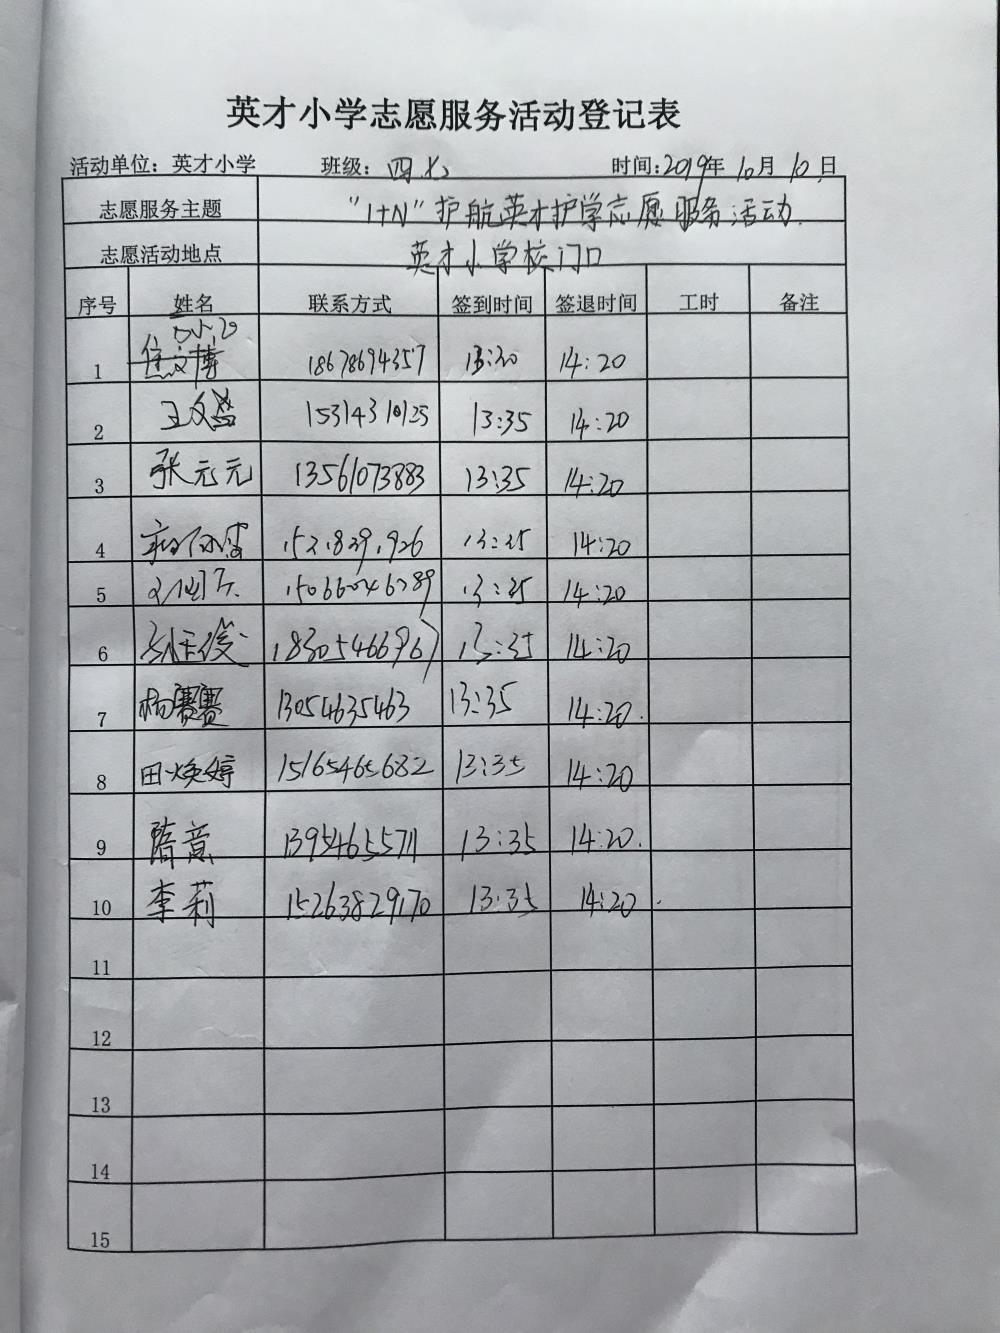 英才小学志愿服务活动登记表
活动单位：英才小学 班级：四. 时间:2019年 10月 10日
志愿服务主题 "1+N"护航英才护学志愿服务活动.
志愿活动地点 英才小学校门口
序号 姓名 联系方式 签到时间 签退时间 工时 备注
1 18678694357 13:30 14:20
2 15314310125 13:35 14:20
3 张元元 13561073883 13:35 14:20
4 14:20
5 15066046789 13:35 14:20
6 18305466967 13:35 14:20
7 杨赛赛 13054635463 13:35 14:20.
8 田焕婷 15165465682 13:35 14:20
9 隋意 13954655711 13:35 14:20.
10 李莉 15263829170 13:35 14:20.
11
12
13
14
15